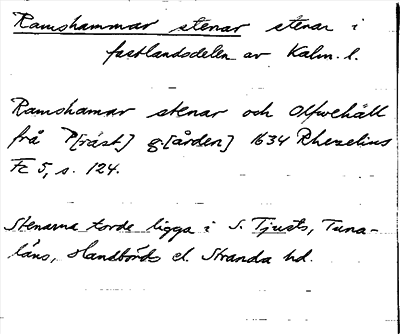 Ramshammar stenar stenar i
fastlandsdelen av Kalm. l.
Ramshamar stenar och Olfwehäll
frå P[räst] g[ården] 1634 Rhezelius
Fc 5, s. 124.
Stenarna torde ligga i S. Tjusts, Tuna-
läns, Handbörds el. Stranda hd.